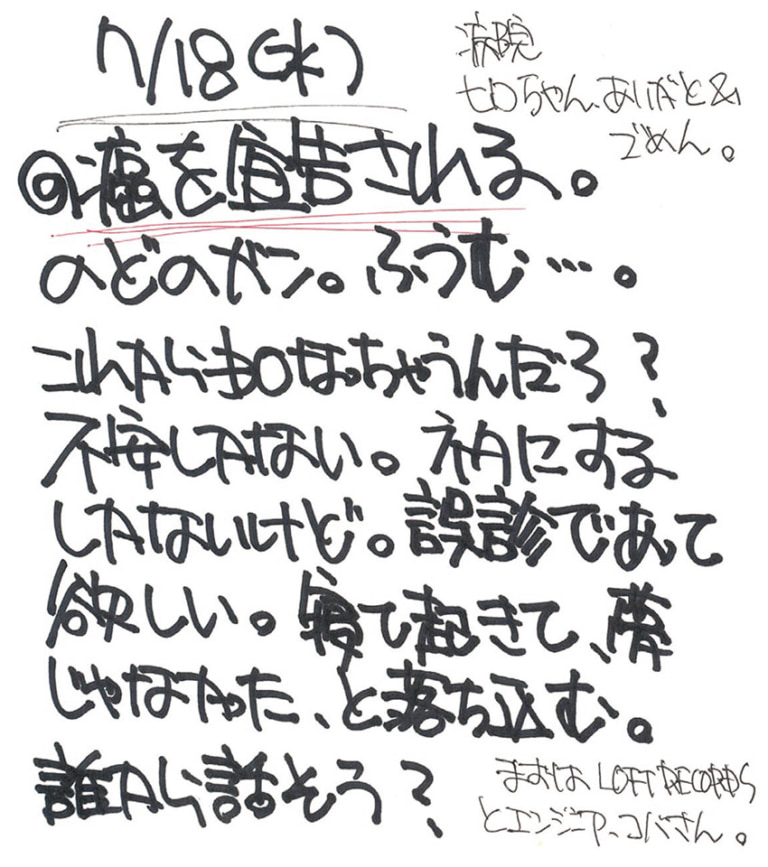 7/18(水)
病院
ヒロちゃん、ありがと&
ごめん。
◎癌を宣告される。
のどのガン。ふうむ…。
これから なっちゃうんだろ?
不安しかない。ネタにする
しかないけど。誤診であって
欲しい。寝て起きて、夢
じゃなかった、と落ち込む。
誰から話そう?
まずは LOFT RECORDS
とエンジニア、コバさん。